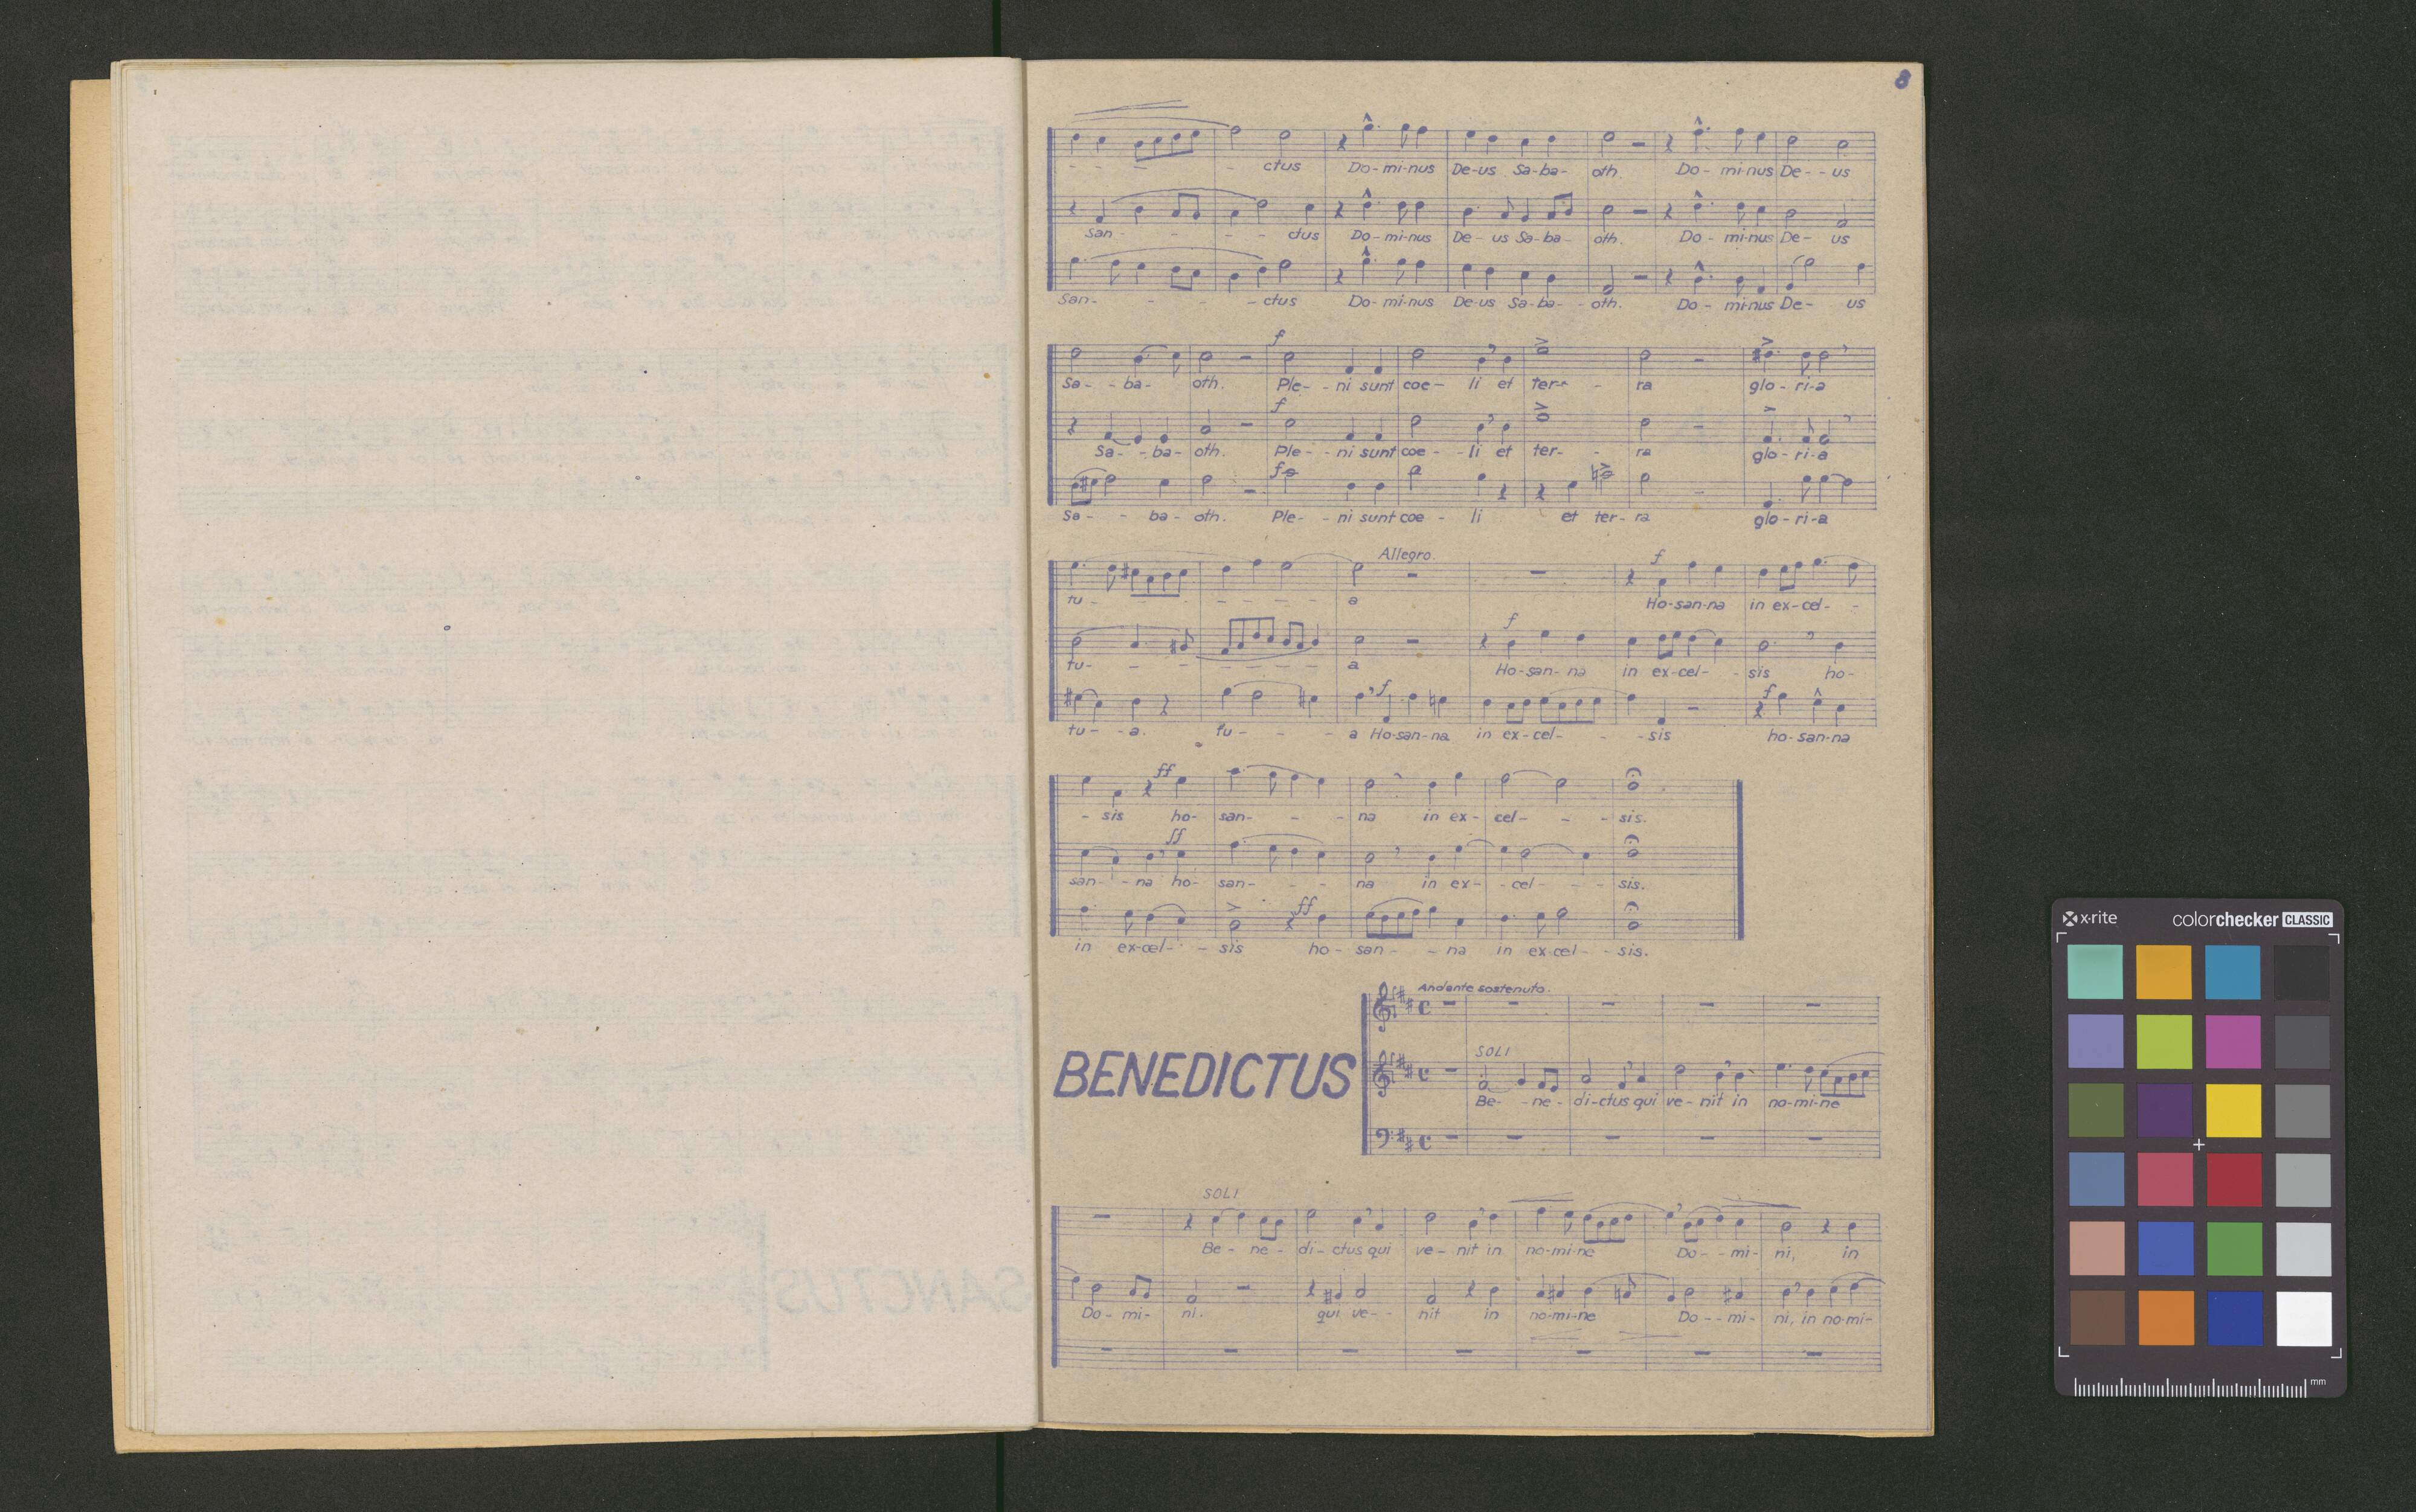 8
- - - ctus Do-mi-nus De-us Sa-ba- oth. Do- mi-nus De- - us
San- - - - - ctus Do-mi-nus De- us Sa-ba- oth. Do- mi-nus De- us
San- - - - - ctus Do-mi-nus De-us Sa-ba- - oth. Do- mi-nus De- us
f
Sa- - ba- oth. Ple- - ni sunt coe- li et ter- - ra glo-ri-a
f
Sa- - ba- oth. Ple- - ni sunt coe- - li et ter- - ra glo-ri-a
f
Sa- - ba- oth. Ple- - ni sunt coe - li et ter- ra glo-ri-a
Allegro.
f
tu- - - - - - - a Ho-san-na in ex-cel- -
f
tu- - - - - - - a Ho-san-na in ex-cel- - sis ho-
f f
tu- - a. tu- - - a Ho-san-na in ex-cel- - - sis ho-san-na
ff
- sis ho- san- - - na in ex- cel- - - sis.
ff
san- - na ho- san- - - na in ex- - cel- - - sis.
ff
in ex-cel- - sis ho- san- - na in ex-cel- - sis.
Andante sostenuto.
BENEDICTUS
SOLI
Be- -ne- di-ctus qui ve-nit in no-mi-ne
SOLI
Be- ne- di-ctus qui ve-nit in no-mi-ne Do- -mi- ni, in
Do- mi- ni. qui ve- - nit in no-mi-ne Do- -mi- ni, in no-mi-
SANCTUS
x-rite colorchecker CLASSIC
mm